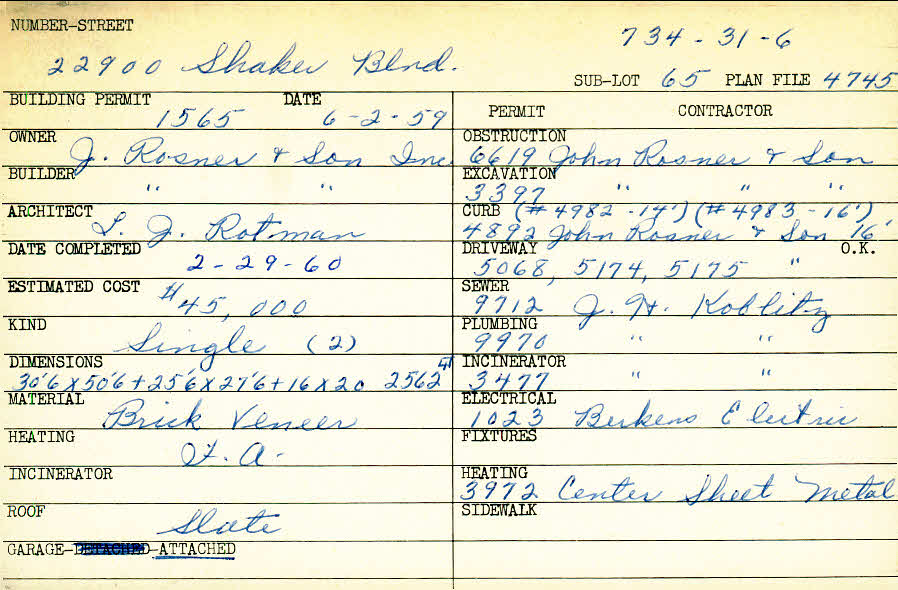 NUMBER-STREET
734-31-6
22900 Shaker Blvd.
SUB-LOT 65 PLAN FILE 4745
BUILDING PERMIT DATE
1565 6-2-59
OWNER
J. Rosner & Son Inc.
BUILDER
" "
ARCHITECT
L. J. Rotman
DATE COMPLETED
2-29-60
ESTIMATED COST
$45,000
KIND
Single (2)
DIMENSIONS
30'6 x 50'6 + 25'6 x 27'6 + 16 x 20 2562
MATERIAL
Brick Veneer
HEATING
F. A.
INCINERATOR
ROOF
Slate
GARAGE-DETACHED-ATTACHED
PERMIT CONTRACTOR
OBSTRUCTION
6619 John Rosner & Son
EXCAVATION
3397 " " "
CURB (#4982-14') (#4983-16')
4892 John Rosner & Son 16'
DRIVEWAY O.K.
5068, 5174, 5175 "
SEWER
9712 J. H. Koblitz
PLUMBING
9970 " "
INCINERATOR
3477 " "
ELECTRICAL
1023 Berkens Electric
FIXTURES
HEATING
3972 Center Sheet Metal
SIDEWALK